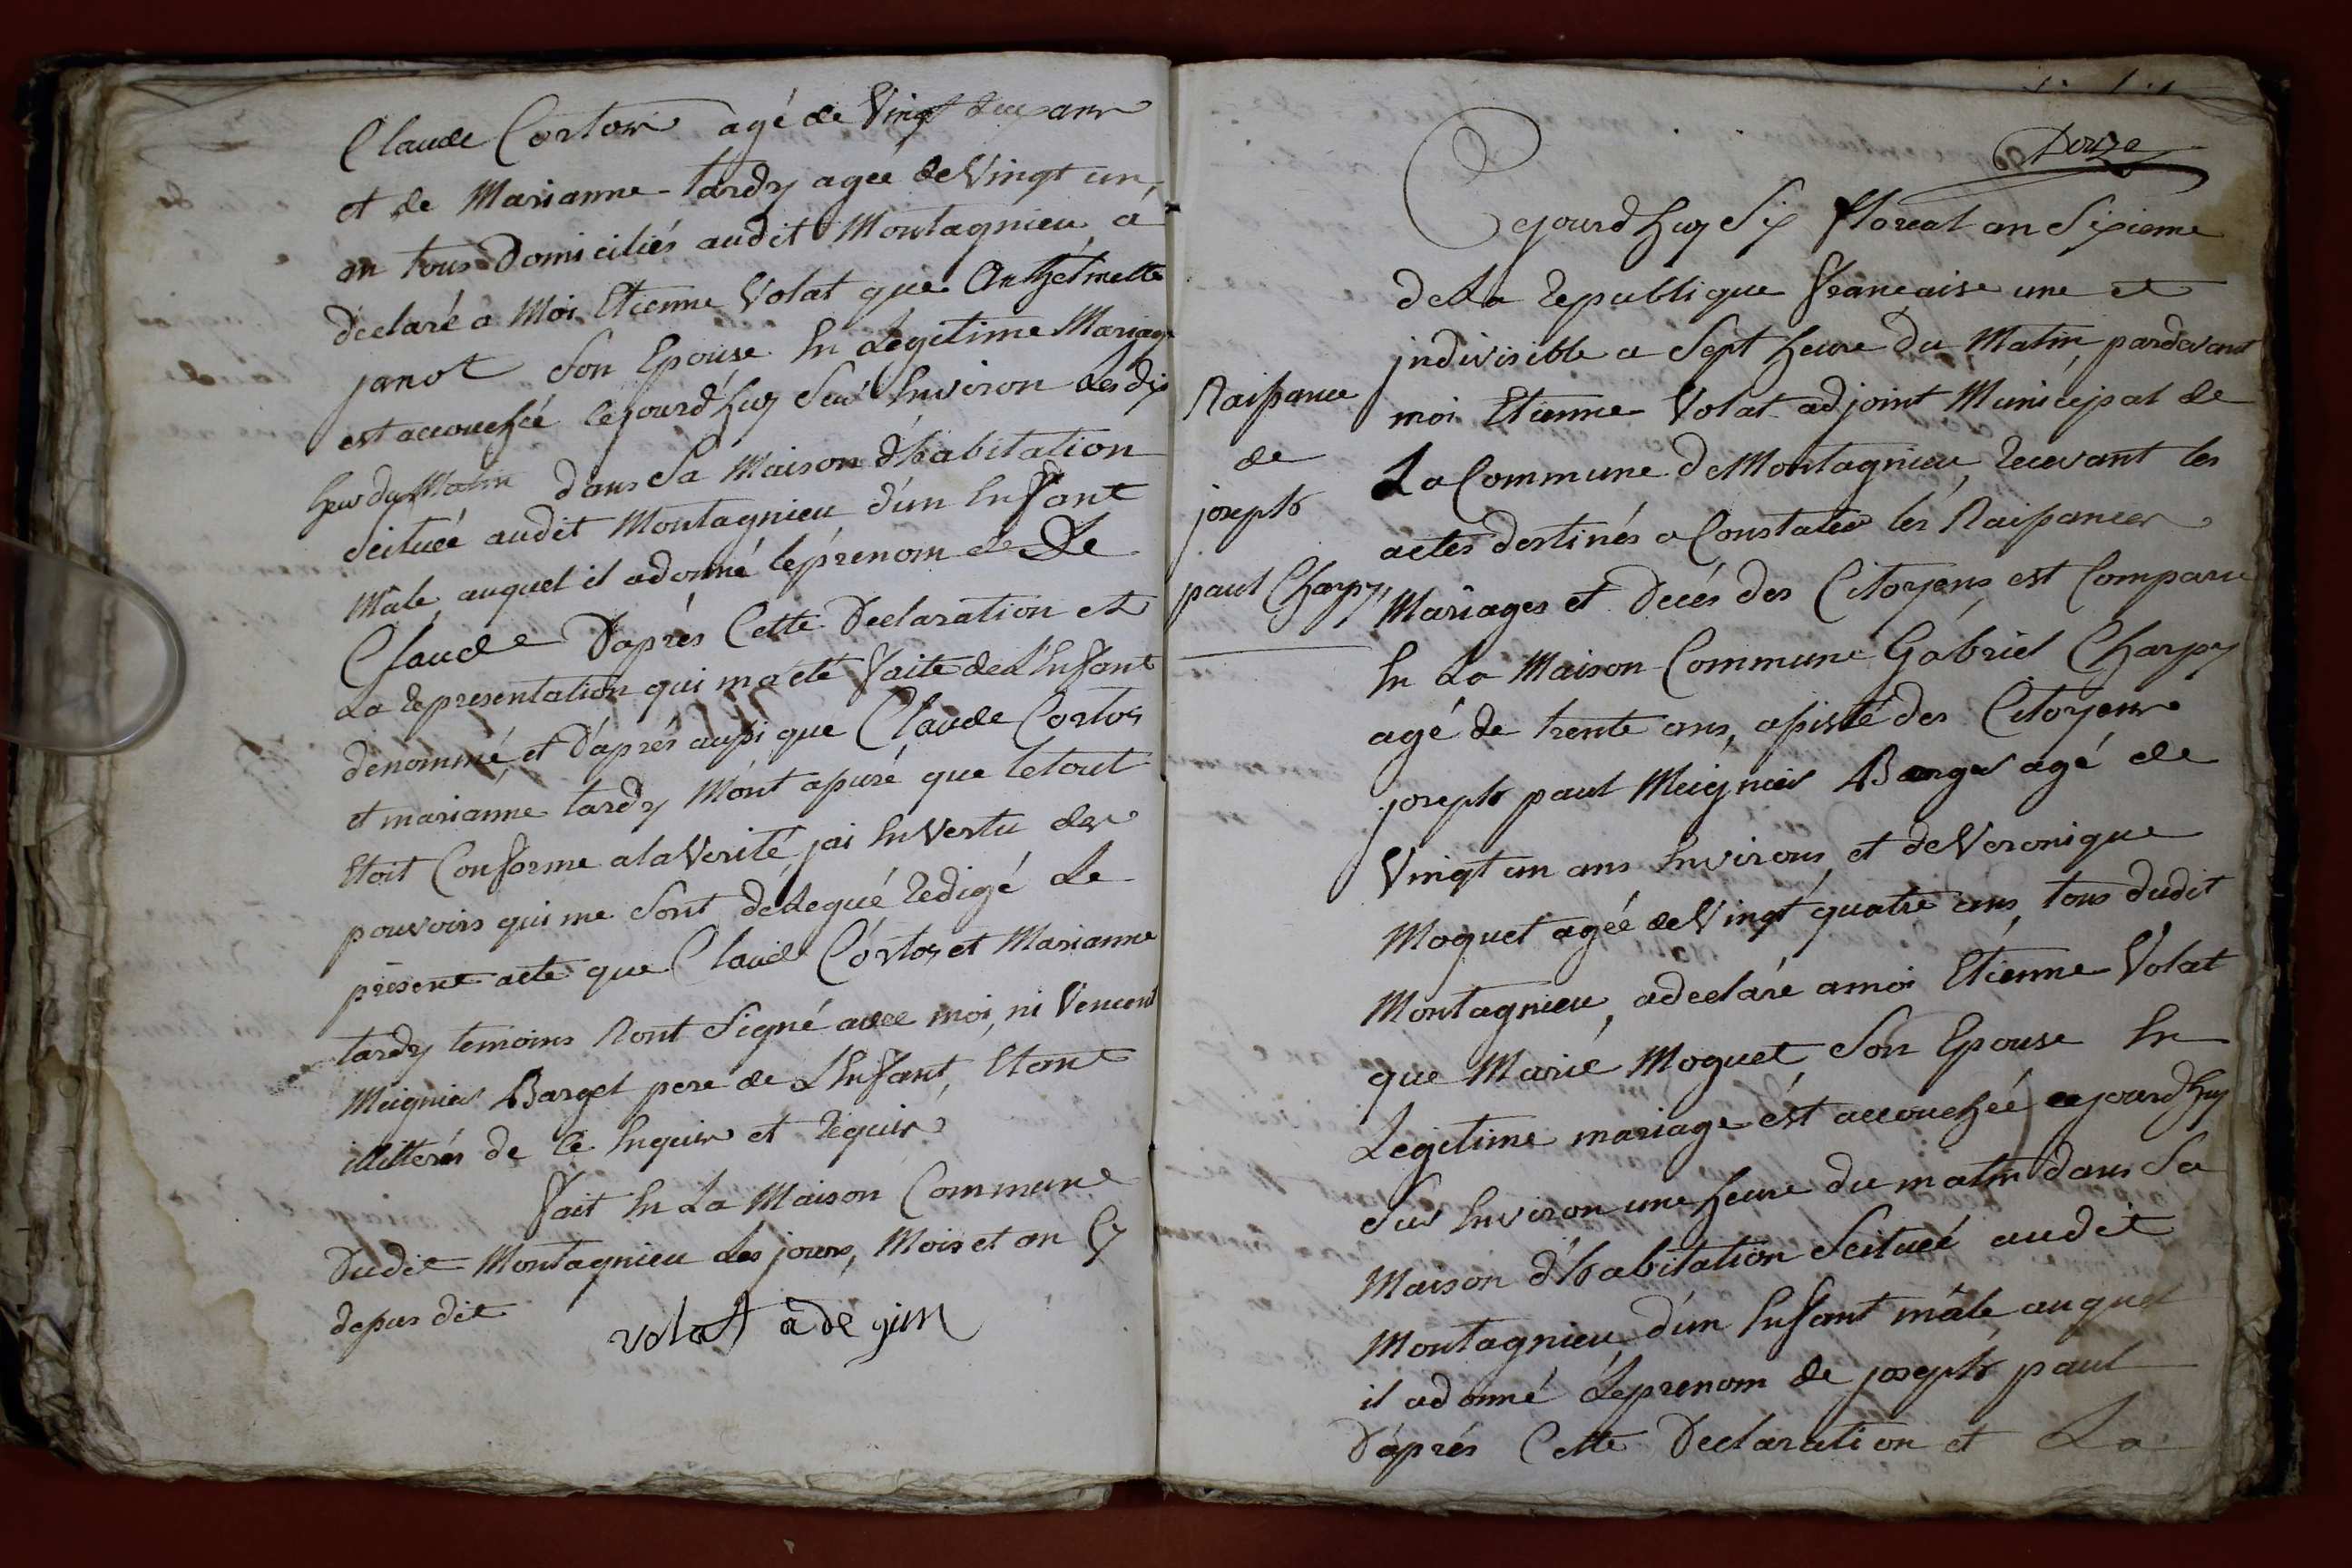 Claude Cortos agé de Vingt deux ans
et de Marianne tardy agée de Vingt un,
an tous Domiciliés audit Montagnieu a
déclaré a Moi Etienne Volat que Anthelmette
janot Son Epouse En Légitime Mariage
est accouchée cejourd'huy Sur Environ Les dix
heur du Matin dans Sa Maison d'habitation
Scituée audit Montagnieu d'un Enffant
Mâle auquel il adonné le prenom de De
Claude D'aprés Cette Declaration et
La Representation qui m'a eté ffaite de L'Enffant
dénommé, et d'aprés aussi que Claude Cortos
et marianne tardy M'ont assuré que le tout
Etoit Confforme a la Verité, jai En Vertu des
pouvoirs qui me Sont délegué Redigé Le
présent acte que Claude Cortos et Marianne
tardy temoins Nont Signé avec moi, ni Vencent
Meignier Barget pere de L'Enffant, Etant
illittérés de ce Enquis et Requis
ffait En La Maison Commune
Dudit Montagnieu Les jours, Mois et an Cy
dessus dit
volat adegim
Douze
Cejourd'huy Six fforeal an Sixieme
de La Republique ffrancaise une et
jndivisible a Sept heure du Matin, pardevant
moi Etienne Volat adjoint Municipal de
La Commune de Montagnieu, Recevant les
actes destinés a Constater les Naissances
Mariages et Decés des Citoyens, est Comparu
En La Maison Commune Gabriel Charpy
agé de trente ans, assisté des Citoyens
joseph paul Meignier Barget agé de
Vingt un ans Environs, et de Veronique
Moquet agée de Vingt quatre ans, tous dudit
Montagnieu, adeclaré amoi Etienne Volat
que Marie Moquet, Son Epouse En
Legitime mariage est accouchée cejourdhuy
Sur Environ une heure du matin dans Sa
Maison d'habitation Scituée audit
Montagnieu d'un Enffant mâle auquel
il adonné Le prenom de joseph paul
D'aprés Cette Declaration et La
Naissance
de
joseph
paul Charpy